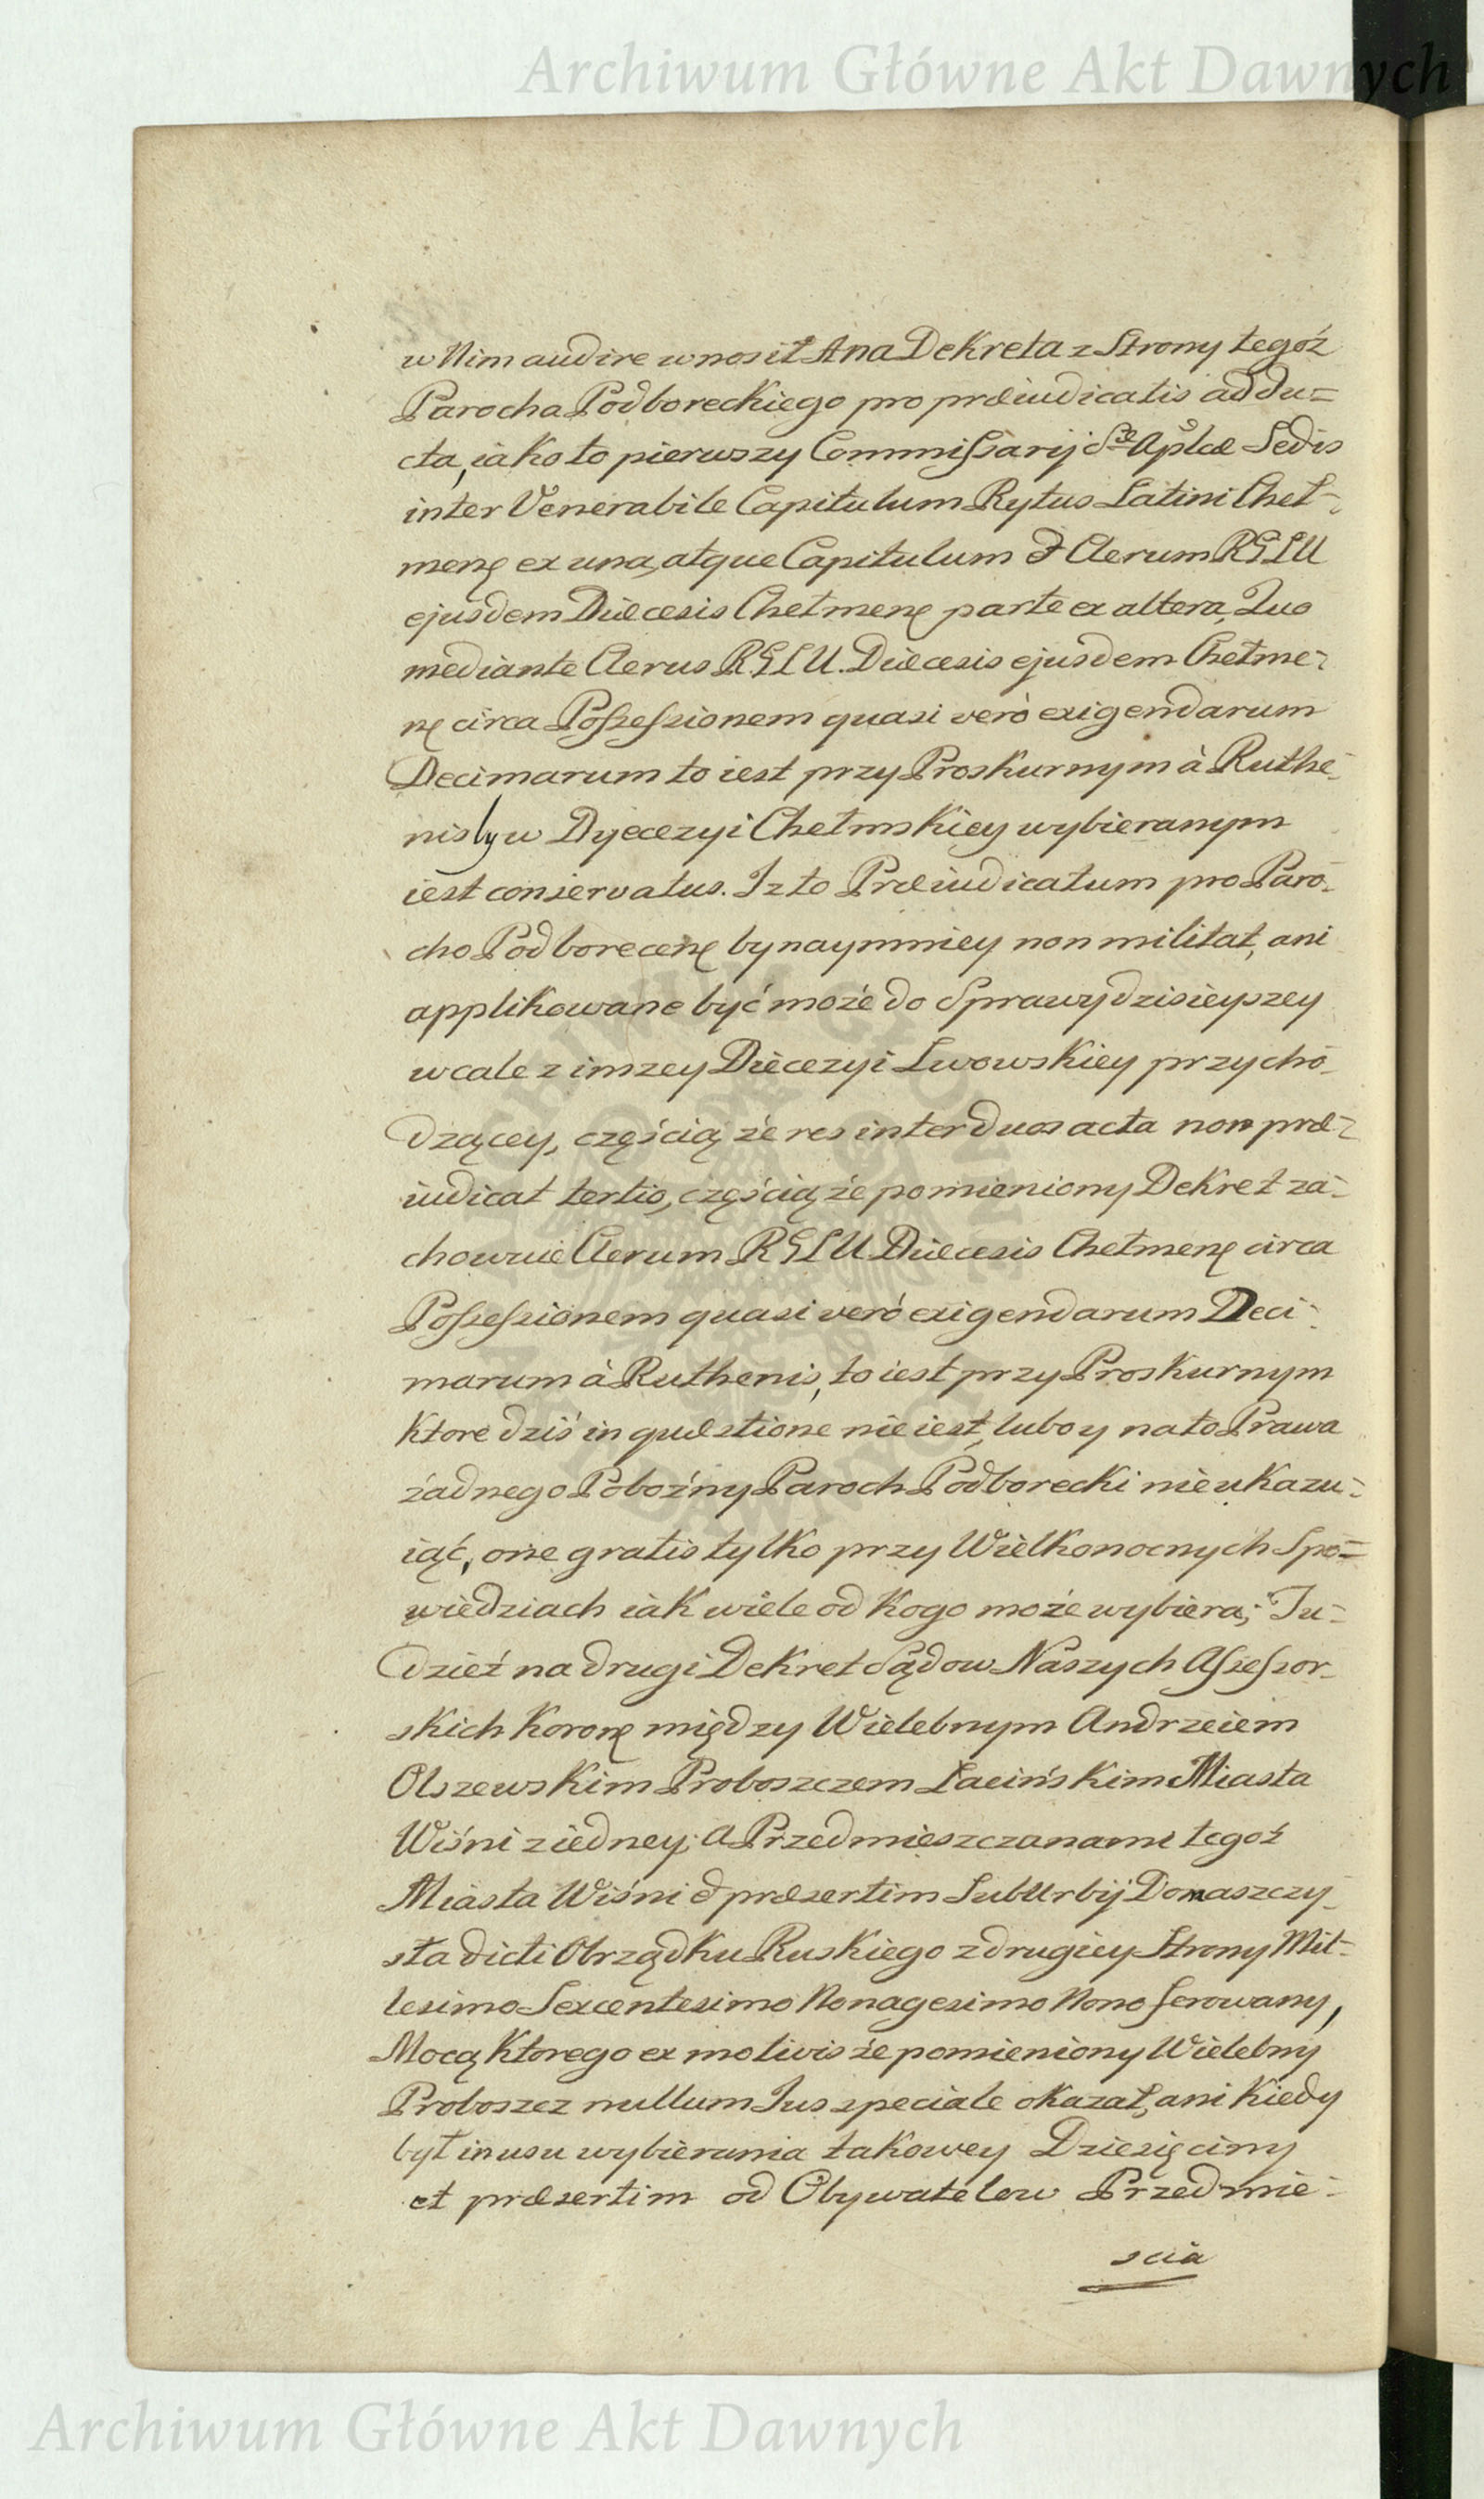 Archiwum Główne Akt Dawnych
w Nim audire wnosił A na Dekreta z Strony tegoż
Parocha Podboreckiego pro præiudicatis addu=
cta, iako to pierwszy Commissarij Sæ Aplcæ Sedis
inter Venerabile Capitulum Rytus Latini Cheł-
menę ex una, atque Capitulum & Clerum RGLU
ejusdem Diœcesis Chełmenę parte ex altera, Quo
mediante Clerus R.G.L.U. Diœcesis ejusdem Chełme-
nę circa Possessionem quasi verò exigendarum
Decimarum to iest przy Proskurnym à Ruthe-
nis ly w Dyecezyi Chełmskiey wybieranym
iest conservatus. Iz to Præiudicatum pro Paro-
cho Podborecenę bynaymniey non militat, ani
applikowane być może do Sprawy dzisieyszey
wcale z inszey Diecezyi Lwowskiey przycho-
dzącey, częścią że res inter duos acta non præ-
iudicat tertio, częścią że pomieniony Dekret za-
chowuie Clerum RGLU Diœcesis Chełmenę circa
Possessionem quasi verò exigendarum Deci-
marum à Ruthenis, to iest przy Proskurnym
Ktore dziś in quæstione nie iest, lubo y na to Prawa
żadnego Pobożny Paroch Podborecki nie ukazu-
iąć, one gratis tylko przy Wielkonocnych Spo=
wiedziach iak wiele od Kogo może wybiera; Tu-
dzież na drugi Dekret Sądow Naszych Assessor-
skich Koronę między Wielebnym Andrzeiem
Olszewskim Proboszczem Łacińskim Miasta
Wiśni z iedney; A Przedmieszczanami tegoż
Miasta Wiśni & præsertim SubUrbij Domaszczy-
sta dicti Obrządku Ruskiego z drugiey Strony Mil-
lesimo Sexcentesimo Nonagesimo Nono ferowany,
Mocą Ktorego ex motivis że pomieniony Wielebny
Proboszcz nullum Jus speciale okazał, ani Kiedy
był in usu wybierania takowey Dziesięciny
et præsertim od Obywatelow Przedmie-
scia
Archiwum Główne Akt Dawnych